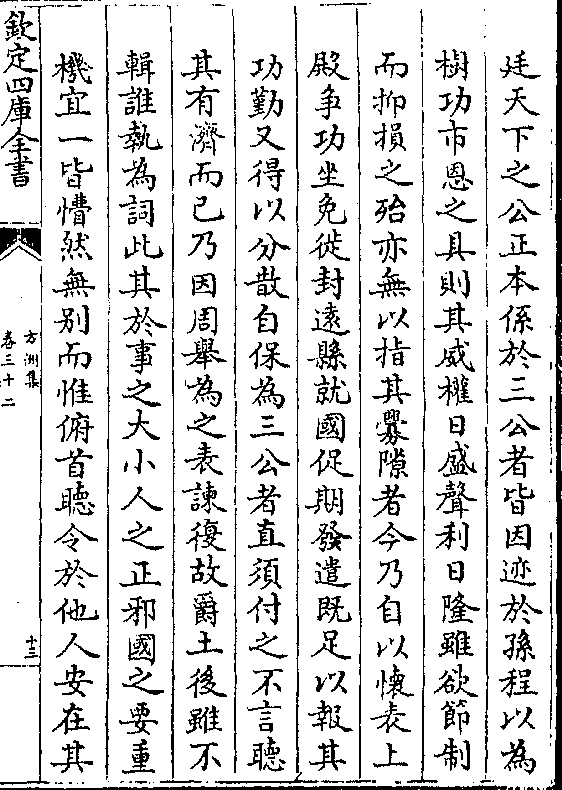 廷天下之公正本係於三公者皆因迹於孫程以為
樹功市恩之具則其威權日盛聲利日隆雖欲節制
而抑損之殆亦無以指其釁隙者今乃自以懷表上
殿爭功坐免徙封遠縣就國促期發遣既足以報其
功勤又得以分散自保為三公者直須付之不言聽
其有濟而已乃因周舉為之表諫復故爵土後雖不
輯誰執為詞此其於事之大小人之正邪國之要重
機宜一皆懵然無别而惟俯首聽令於他人安在其
欽定四庫全書
方洲集
卷三十二
十三